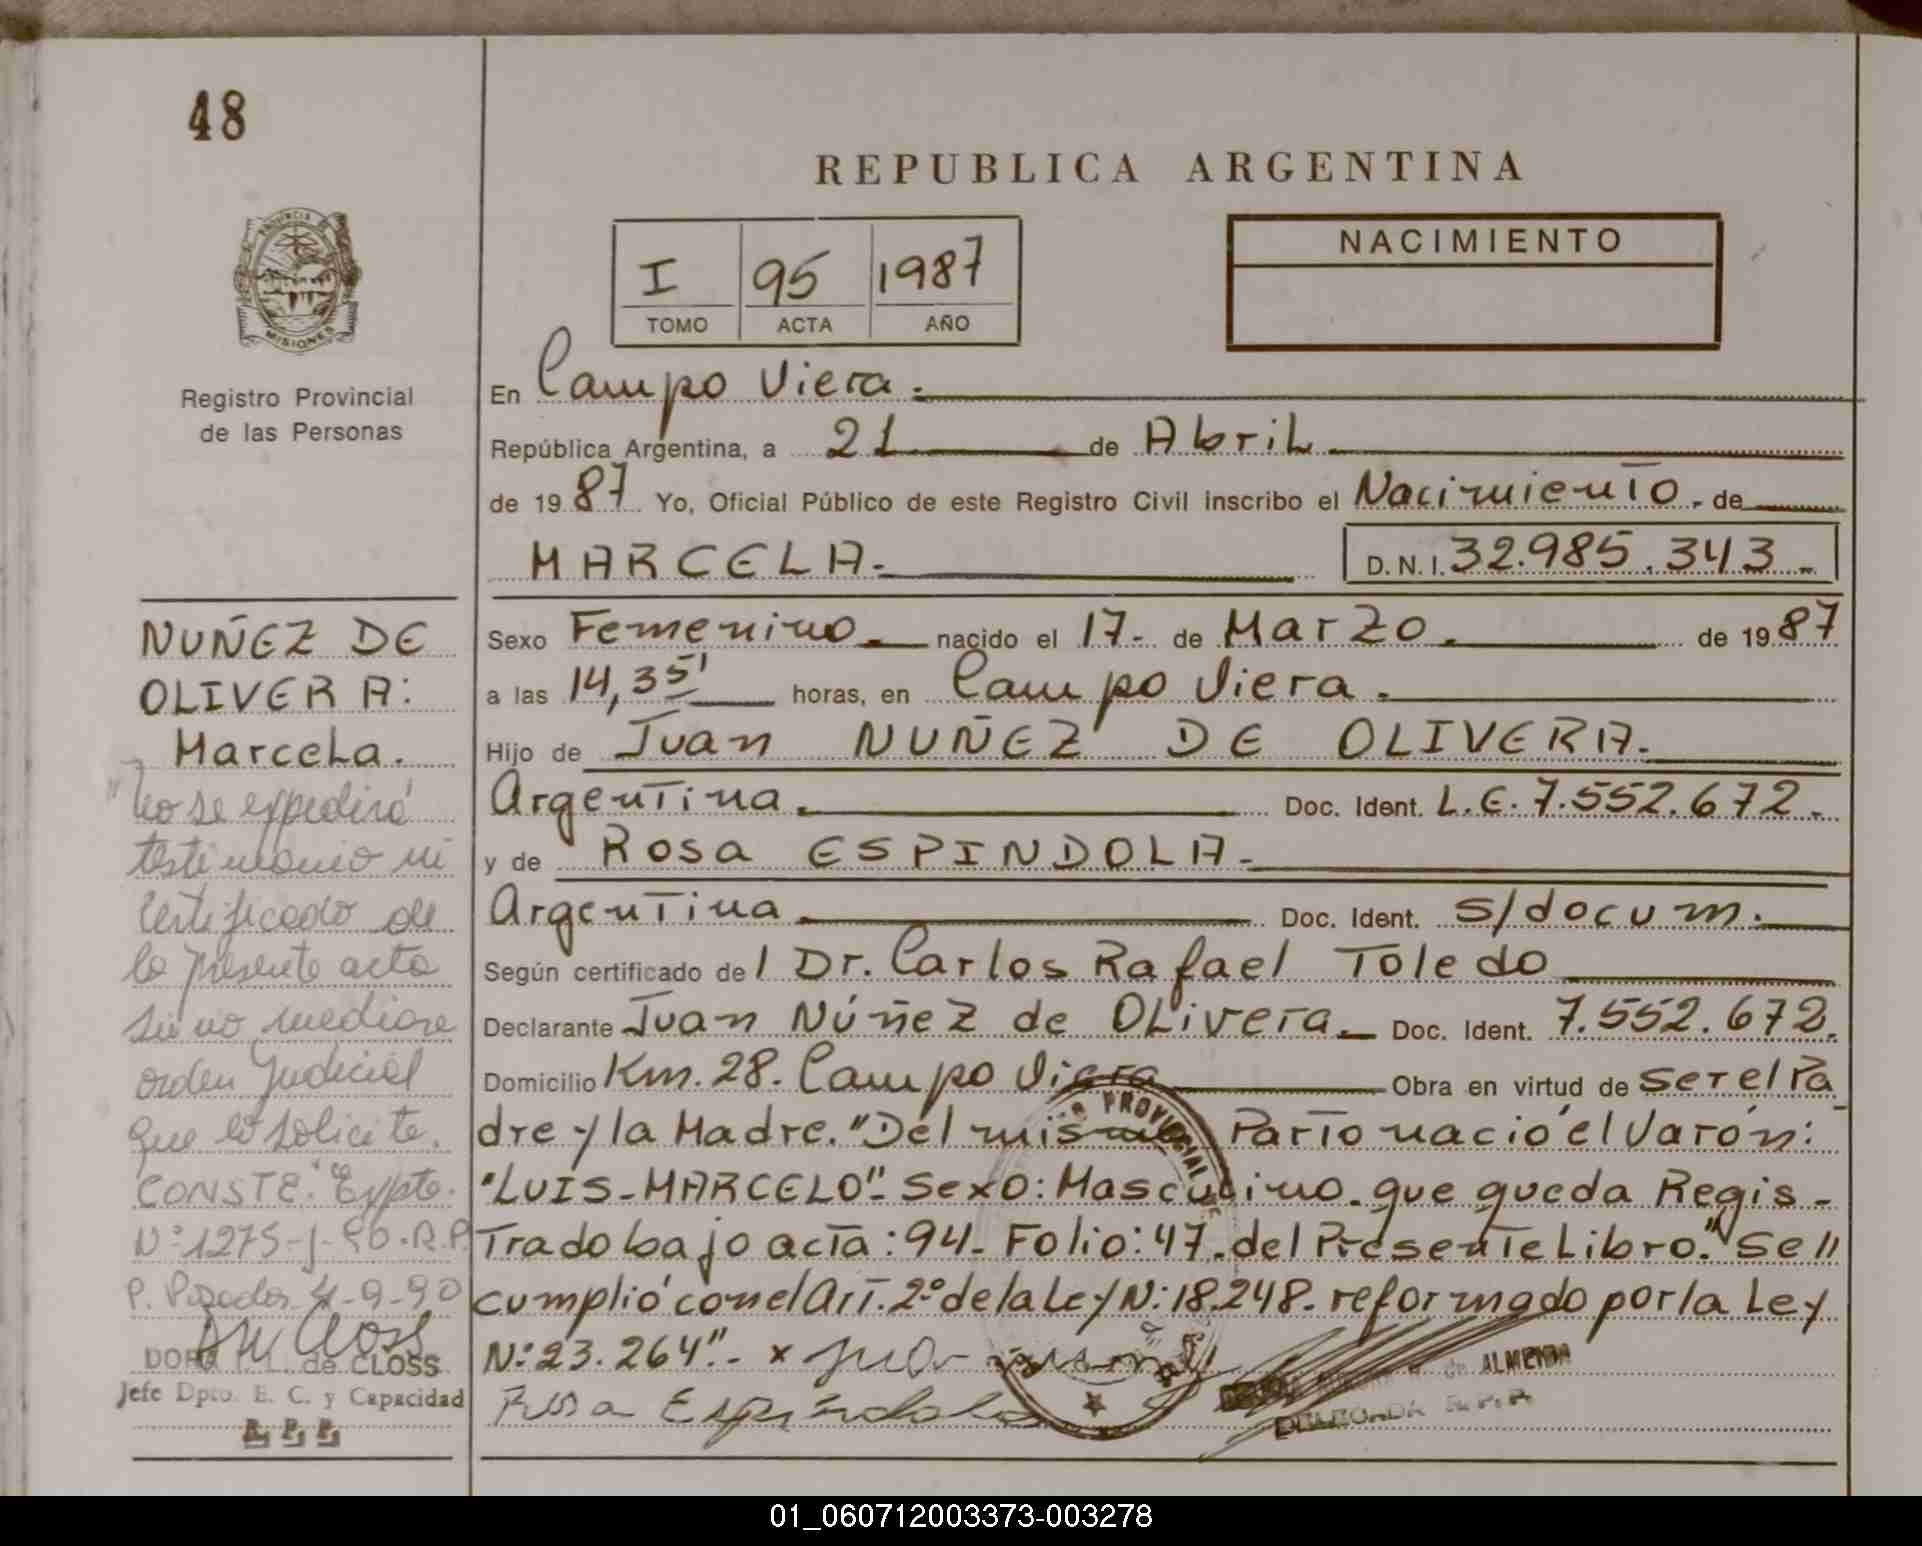 48
REPUBLICA ARGENTINA
PROVINCIA DE
MISIONES
Registro Provincial
de las Personas
I 95 1987
TOMO ACTA AÑO
NACIMIENTO
En Campo Viera.
República Argentina, a 21 de Abril
de 19 87 Yo, Oficial Público de este Registro Civil inscribo el Nacimiento. de
MARCELA. D.N.I. 32.985.343
Sexo Femenino. nacido el 17 de Marzo. de 19 87
a las 14,35' horas, en Campo Viera.
Hijo de Juan NUÑEZ DE OLIVERA.
Argentina. Doc. Ident. L.E. 7.552.672.
y de Rosa ESPINDOLA.
Argentina. Doc. Ident. s/docum.
Según certificado de l Dr. Carlos Rafael Toledo
Declarante Juan Núñez de Olivera. Doc. Ident. 7.552.672.
Domicilio Km. 28. Campo Viera Obra en virtud de ser el Pa
dre y la Madre. "Del mismo Parto nació el Varón:
"LUIS-MARCELO". Sexo: Masculino. que queda Regis-
Trado bajo acta: 94. Folio: 47. del Presente Libro." Se ll
cumplió con el Art. 2º de la Ley N: 18.248. reformado por la Ley
Nº 23.264".- x
Rosa Espindola
PROVINCIAL
de ALMEIDA
NUÑEZ DE
OLIVERA:
Marcela.
"No se expedirá
testimonio ni
certificado de
la presente acta
si no mediare
orden Judicial
que lo solicite.
CONSTE." Expte.
Nº 1275-J-90-R.P.
P. Posadas 4-9-90
DORA de CLOSS
Jefe Dpto. E. C. y Capacidad
R. P. P.
01_060712003373-003278